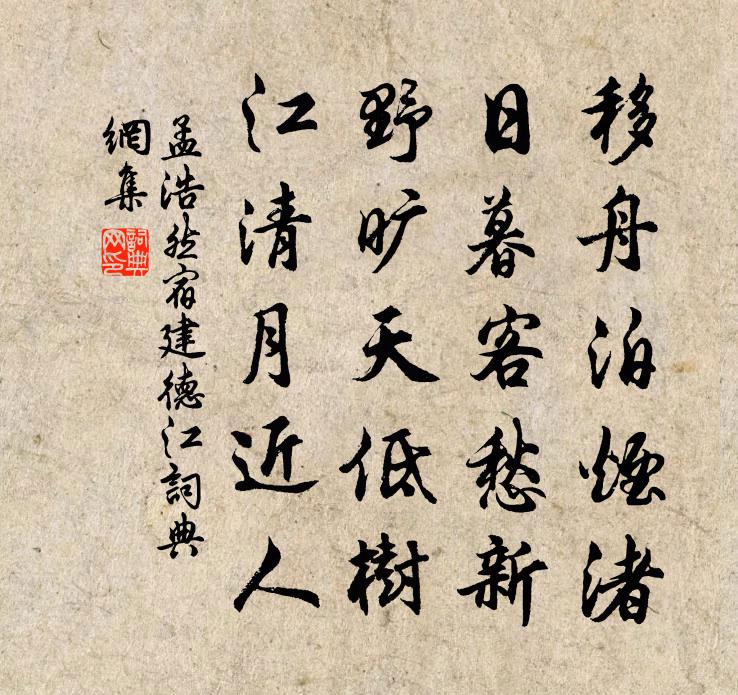 移舟泊煙渚
日暮客愁新
野旷天低樹
江清月近人
孟浩然宿建德江詞典
網集
詞典
网印